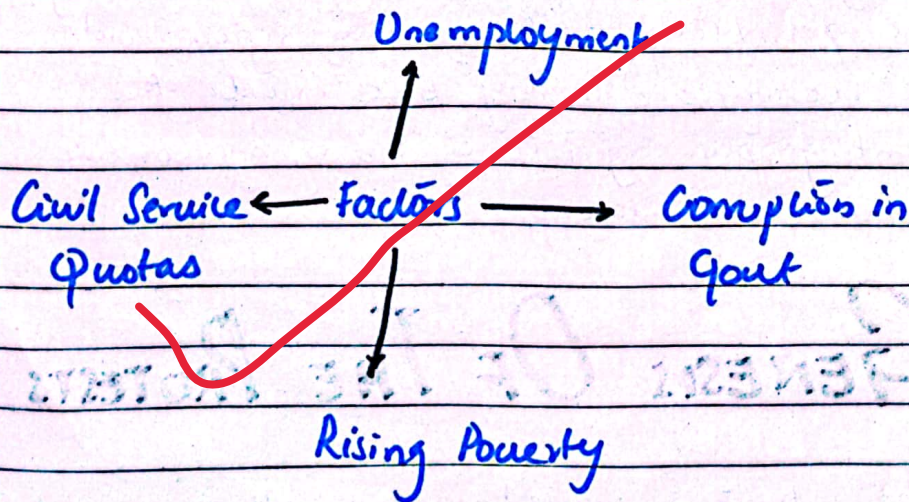 Unemployment
Civil Service ← Factors → Corruption in
Quotas Govt
Rising Poverty